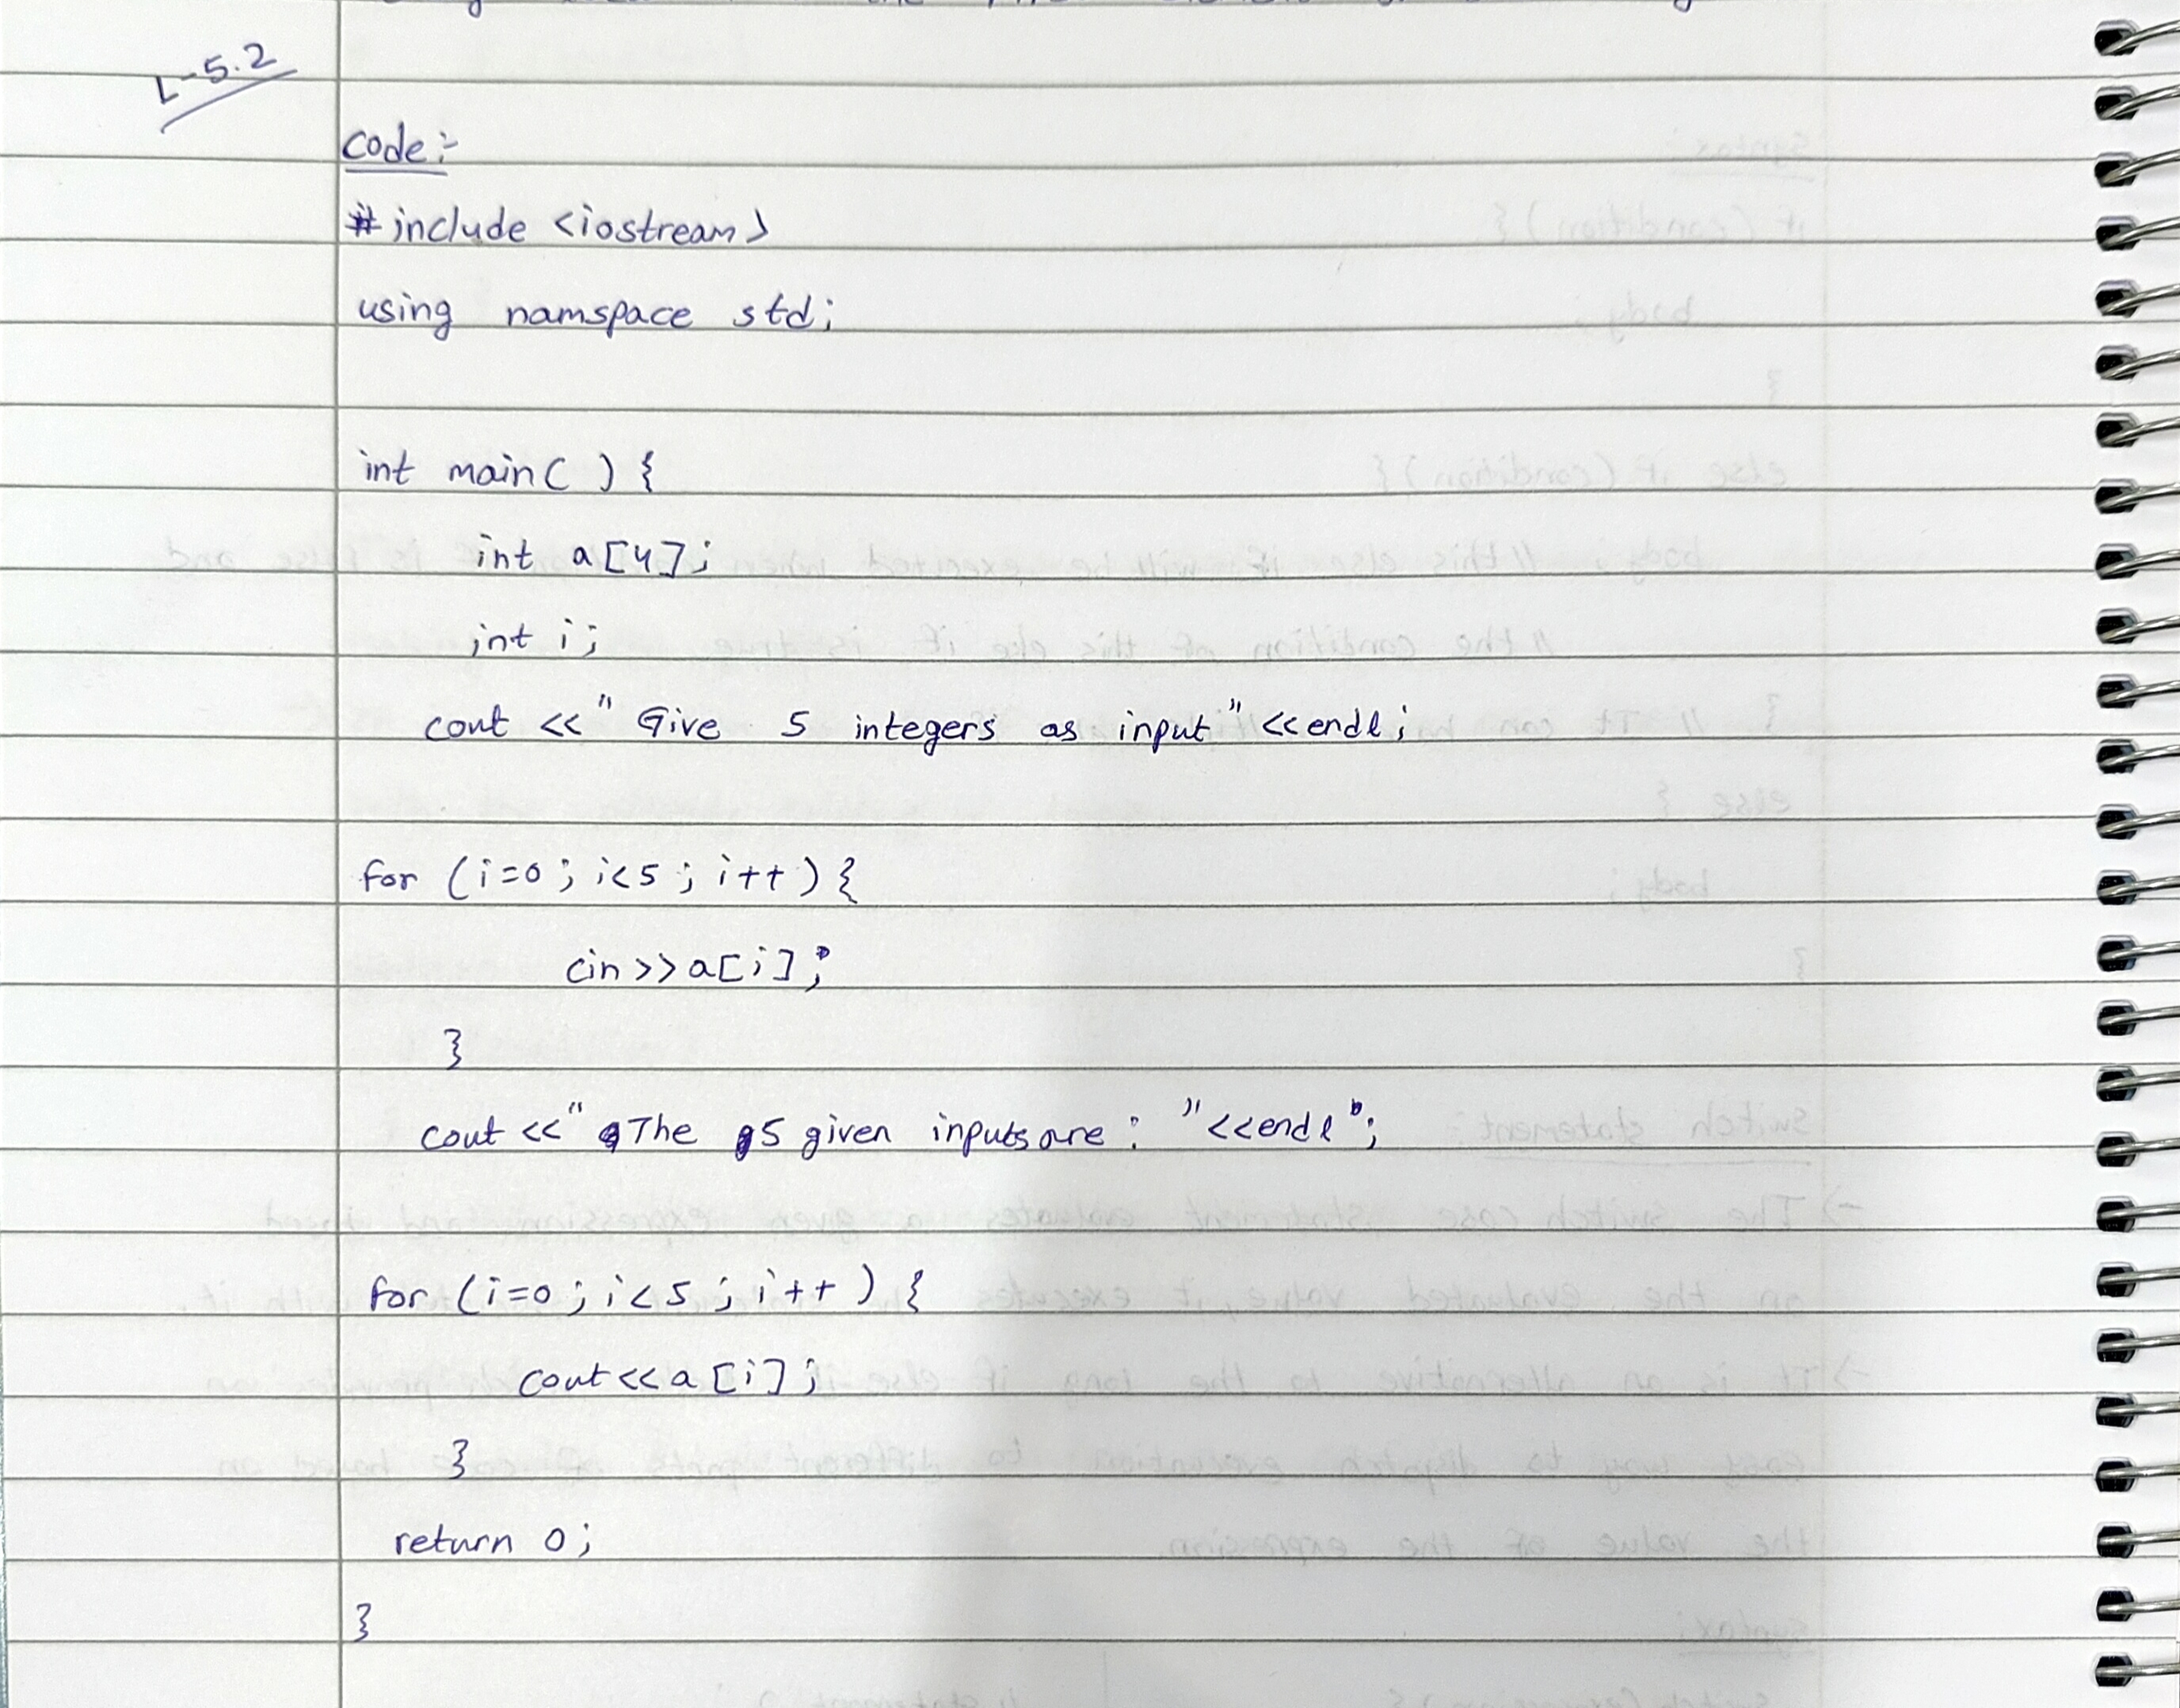 the
L-5.2
Code:-
#include <iostream>
using namspace std;
int main( ) {
int a[4];
int i;
cout << " Give 5 integers as input" <<endl;
for (i=0; i<5; i++) {
cin>>a[i];
}
cout << " The 5 given inputs are: " <<endl;
for (i=0; i<5; i++) {
cout<<a[i];
}
return 0;
}